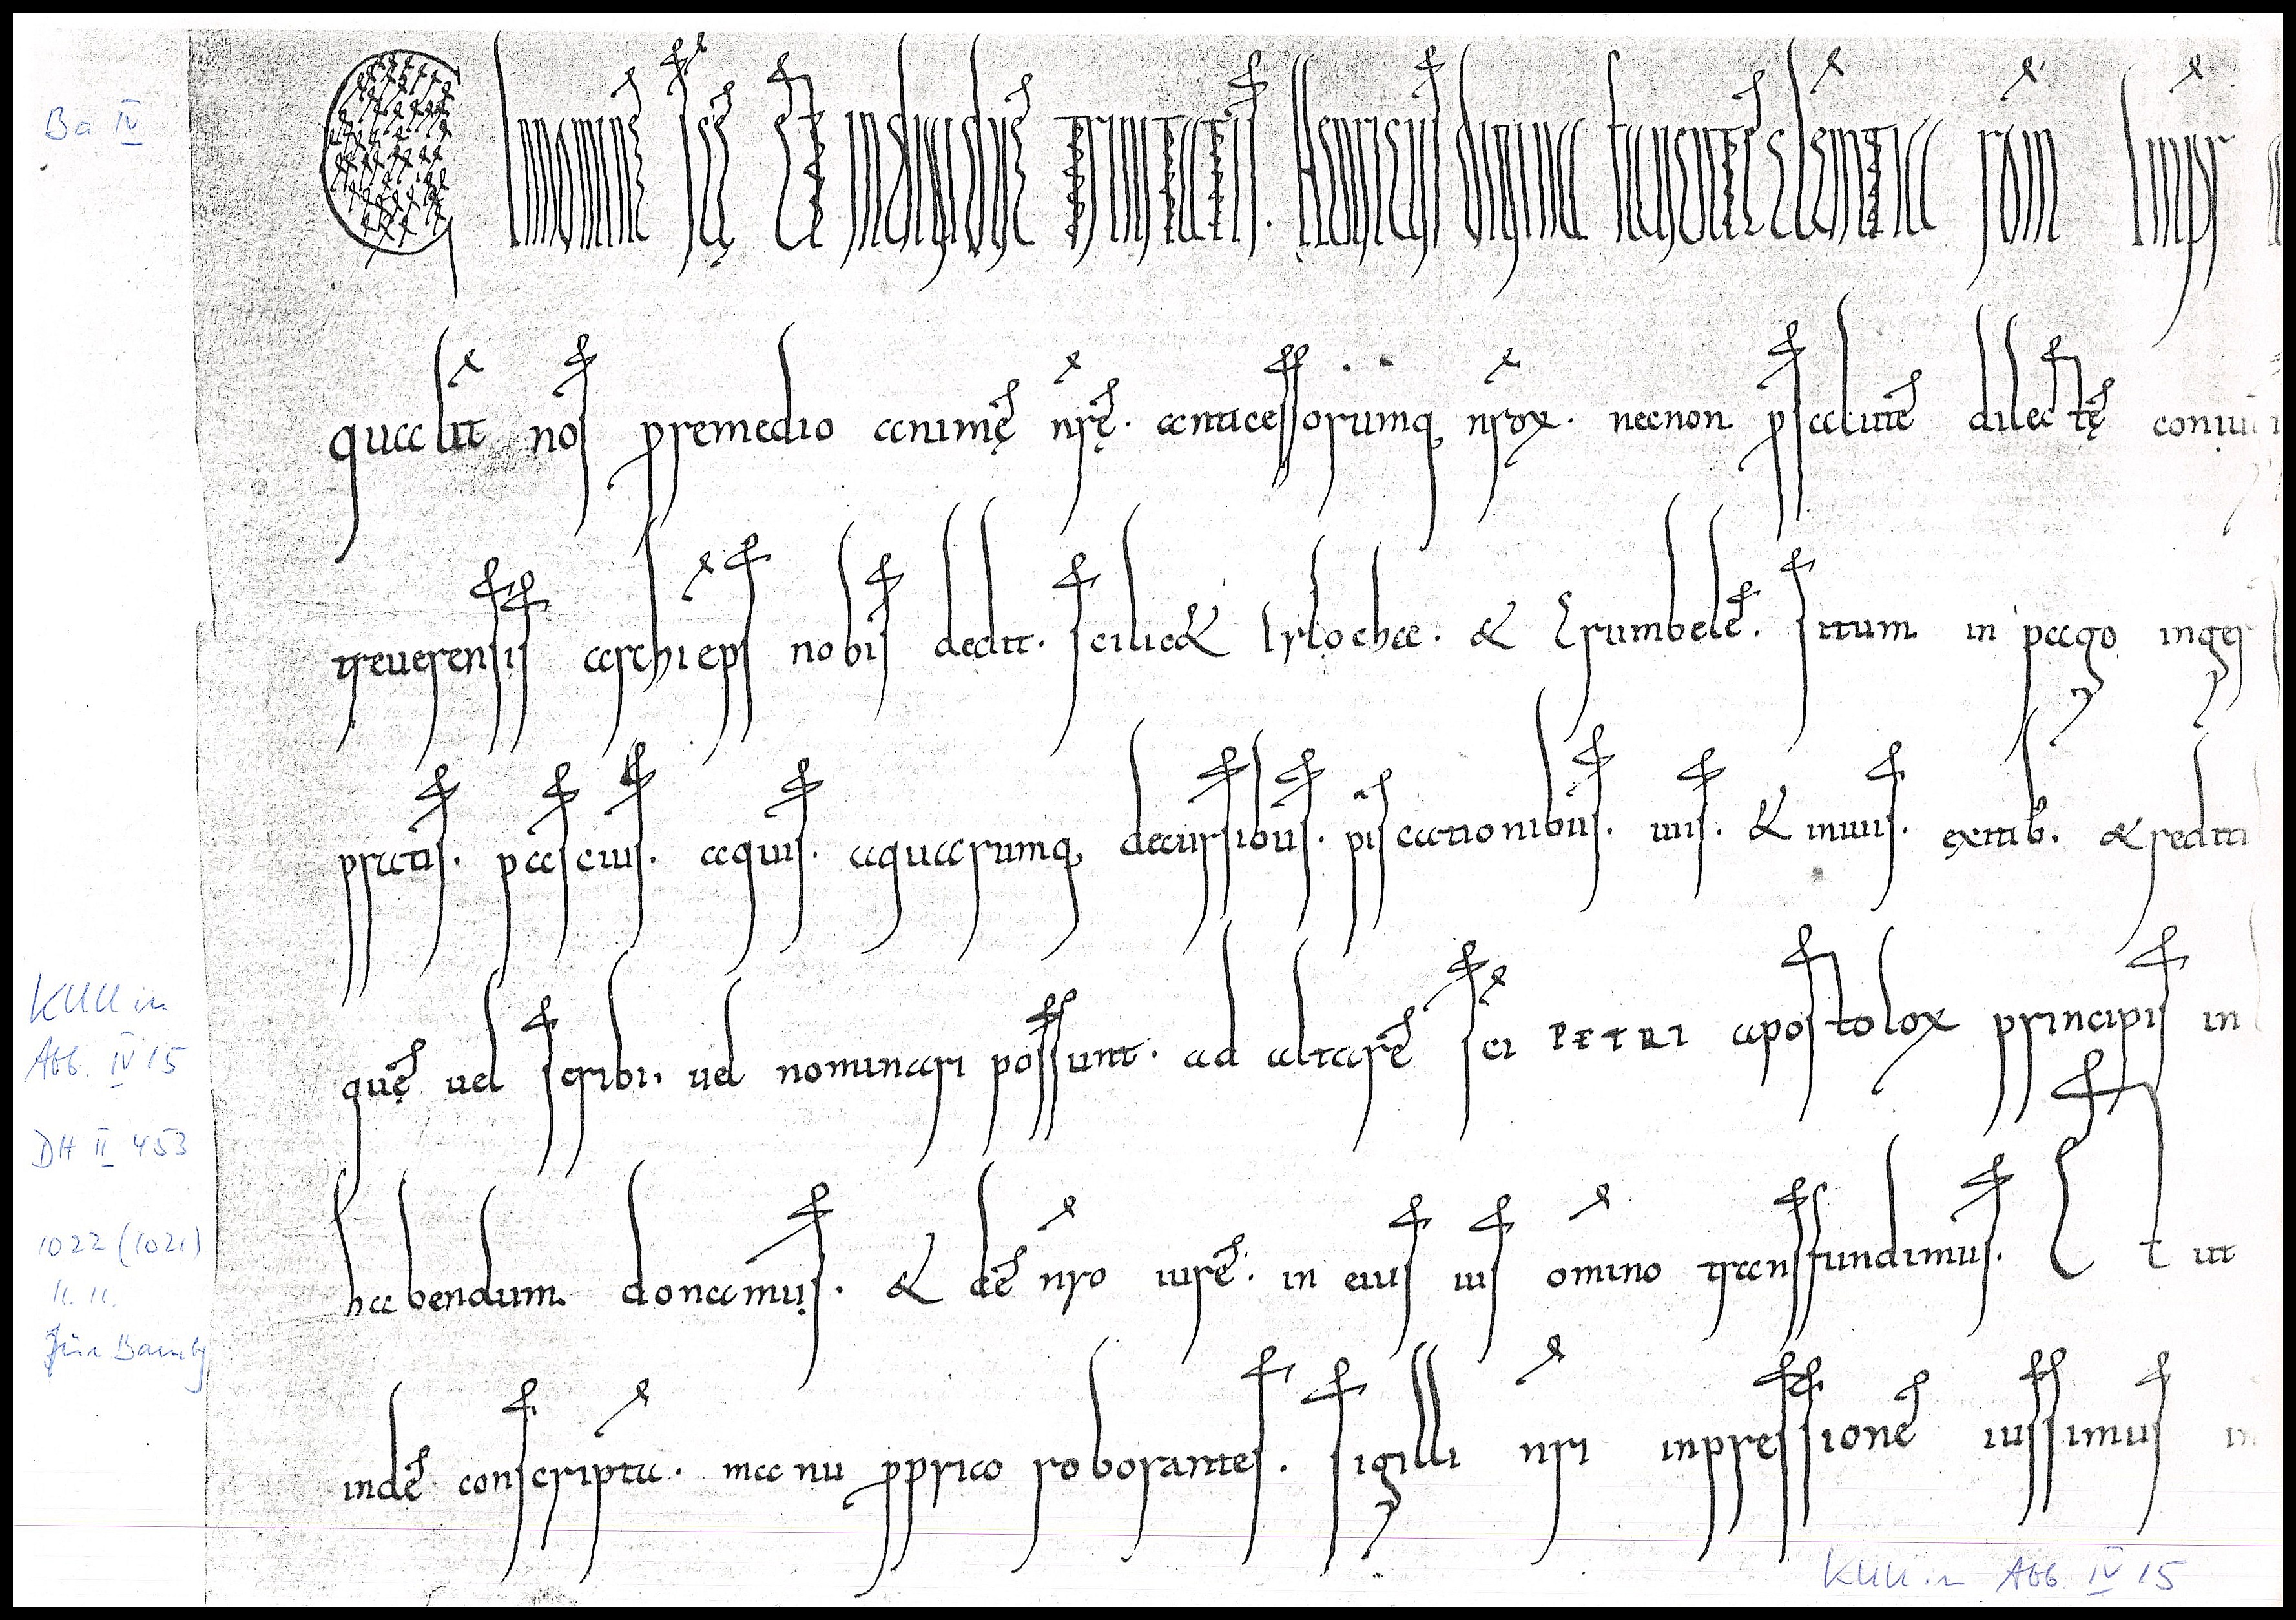 Ba IV
In nomine scę et indiuiduę trinitatis. Heinricus diuina fauente clementia rom impr
qualit nos premedio animę nrę. antecessorumq nrox. necnon p salute dilectę coniu
treuerensis archieps nobis dedit. scilic& Irlocha. & Crumbele. situm in pago inger
pratis. pascuis. aquis. aquarumq decursibus. piscationibus. uiis. & inuiis. exitib. & rediti
quę uel scribi. uel nominari possunt. ad altare sci PETRI apostolox principis in
habendum donamus. & de nro iure. in eius ius omino transfundimus. Et ut
inde conscripta. manu ppria roborantes. sigilli nri inpressione iussimus in
KUU in
Abb. IV 15
DH II 453
1022 (1021)
11. 11.
für Bambg
KUU in Abb. IV 15